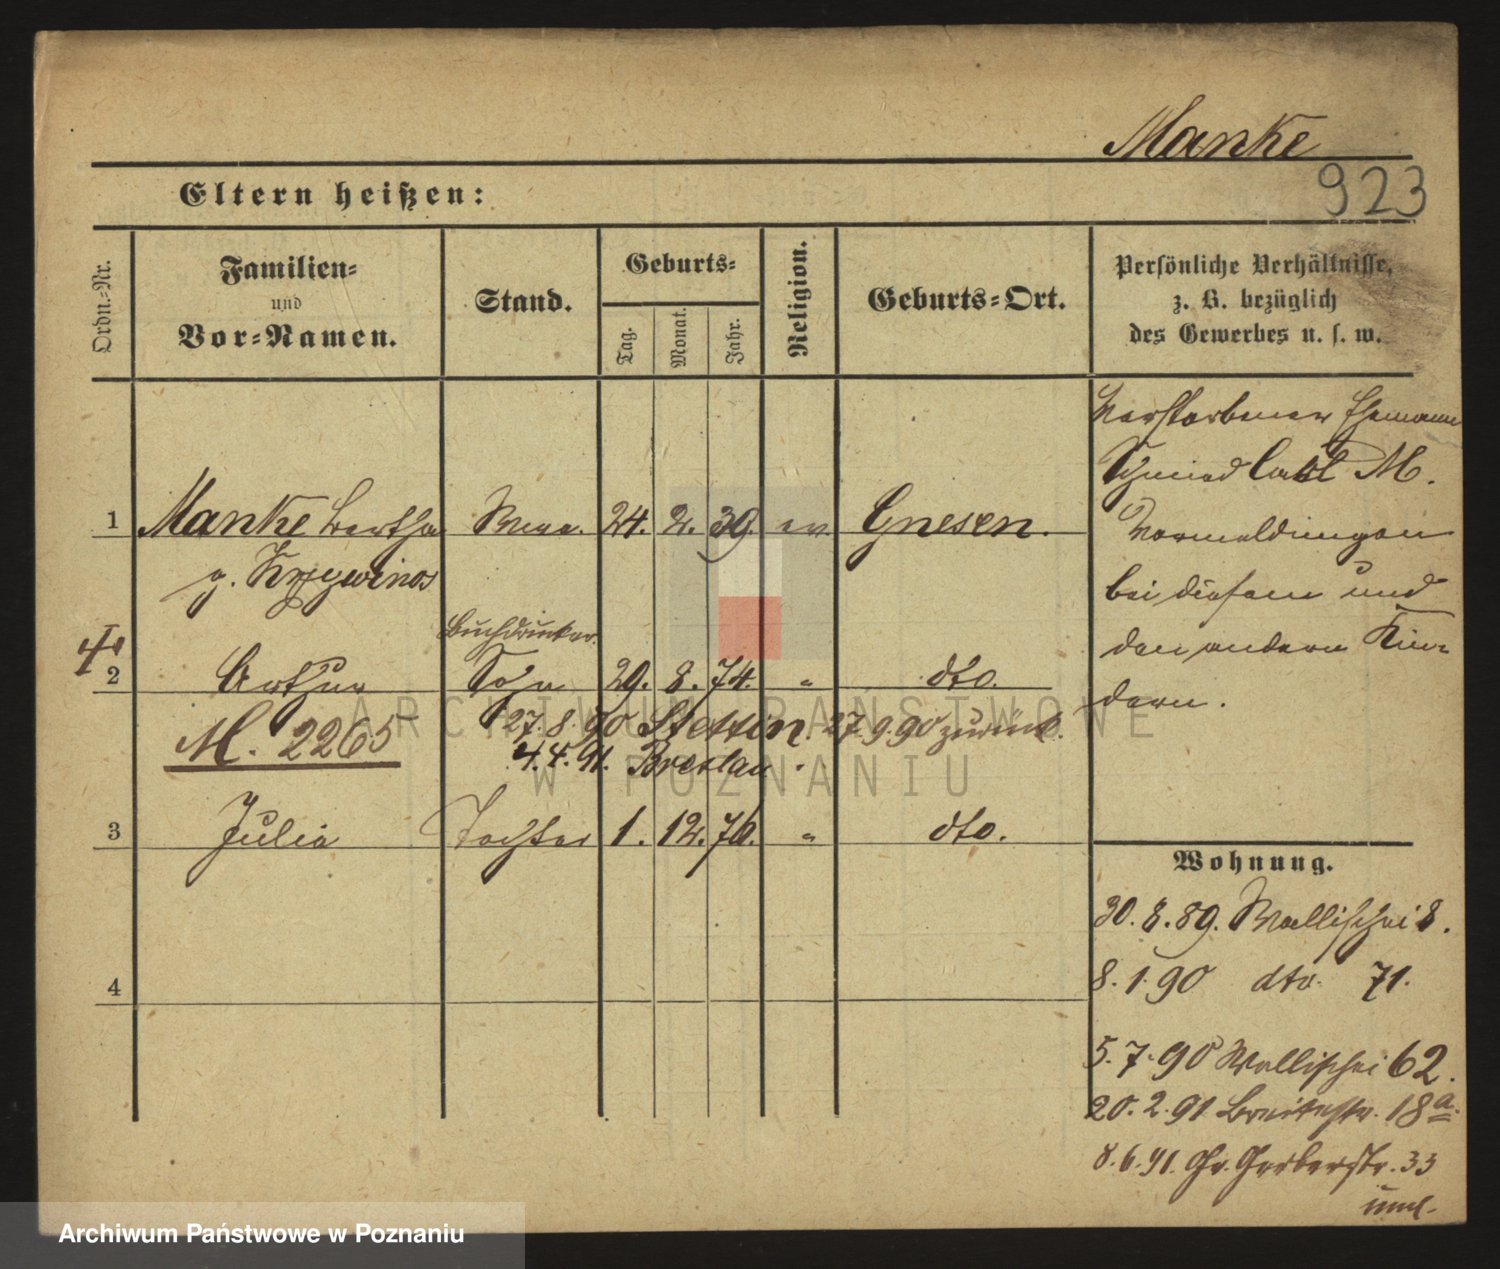 Manke
923
Eltern heißen:
Ordn.-Nr.
Familien-
und
Vor-Namen.
Stand.
Geburts-
Tag.
Monat.
Jahr.
Religion.
Geburts-Ort.
Persönliche Verhältnisse,
z. B. bezüglich
des Gewerbes u. s. w.
Verstorbener Ehemann
Schmied Carl M.
Vormeldungen
bei diesem und
den andern Kin-
dern.
1 Manke Bertha Wwe. 24. 2. 39. ev. Gnesen.
g. Krzywinos
Buchdrucker.
2 Arthur Sohn 29. 8. 74. " dto.
27. 8. 90 Stettin. 27. 9. 90 zurück.
M. 2265
4. 4. 91. Breslau.
3 Julia Tochter 1. 12. 76. " dto.
4
Wohnung.
30. 8. 89. Wallischei 8.
8. 1. 90 dto. 71.
5. 7. 90 Wallischei 62.
20. 2. 91 Breitestr. 18a.
8. 6. 91. Gr. Gerberstr. 33
ARCHIWUM PAŃSTWOWE
W POZNANIU
Archiwum Państwowe w Poznaniu